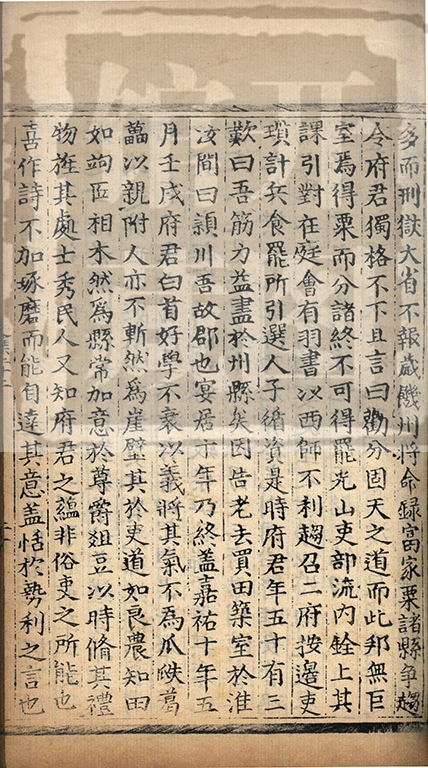 多而刑獄大省不報歲饑州將命録富家粟諸縣爭趨
令府君獨格不下且言曰勸分固天之道而此邦無巨
室焉得粟而分諸終不可得罷光山吏部流内銓上其
課引對在庭會有羽書以西師不利趨召二府按邊吏
瑣計兵食罷所引選人子循資是時府君年五十有三
歎曰吾筋力益盡於州縣矣因告老去買田築室於淮
汝間曰潁川吾故郡也宴居十年乃終蓋嘉祐十年五
月壬戌府君白首好學不衰以義將其氣不為瓜瓞葛
藟以親附人亦不斬然爲崖壁其於吏道如良農知田
如竘匠相木然爲縣常加意於尊爵爼豆以時脩其禮
物旌其處士秀民人又知府君之蘊非俗吏之所能也
喜作詩不加琢磨而能自達其意蓋恬於勢利之言也